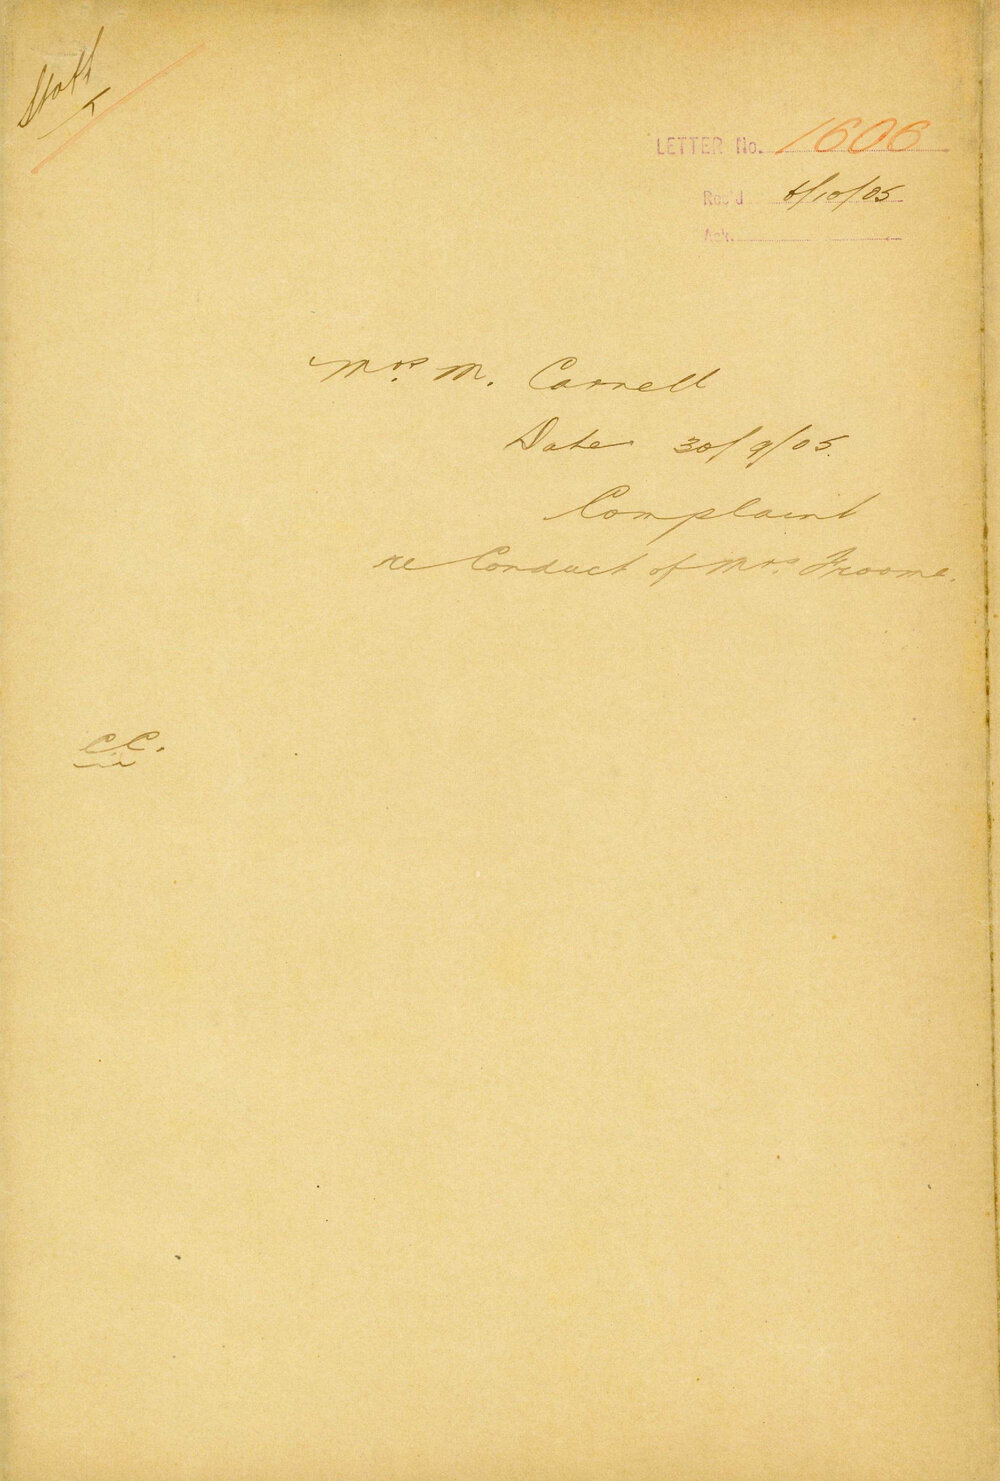 Staff
LETTER No. 1606
Rec'd 6/10/05
Ack.
Mrs. M. Carrell
Date 30/9/05.
Complaint
re Conduct of Mrs. Froome.
C.C.